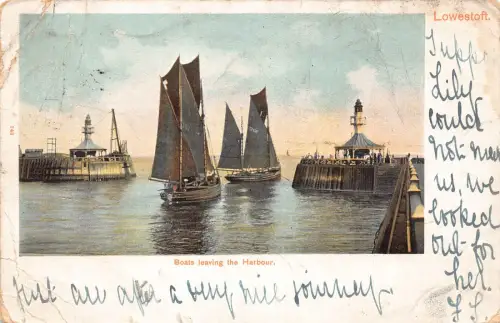 Lowestoft.
Suppr
Lily
could
not meet
us, we
looked
out for
her
J. S.
Boats leaving the Harbour.
Just are after a very nice journey.